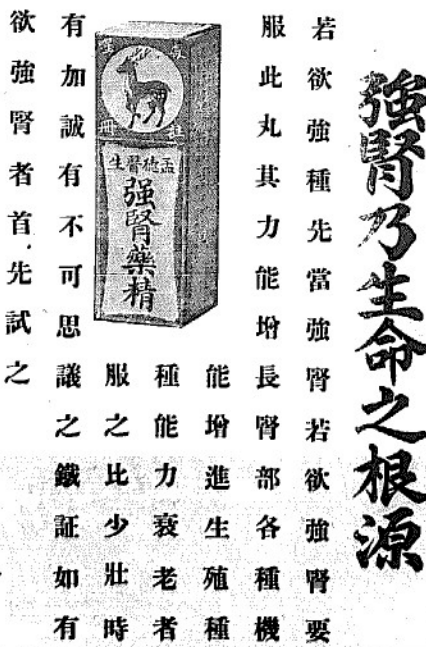 強腎乃生命之根源
若欲強種先當強腎若欲強腎要
服此丸其力能增長腎部各種機
能增進生殖種
種能力衰老者
服之比少壯時
有加誠有不可思議之鐵証如有
欲強腎者首先試之
孟德醫生
强腎藥精